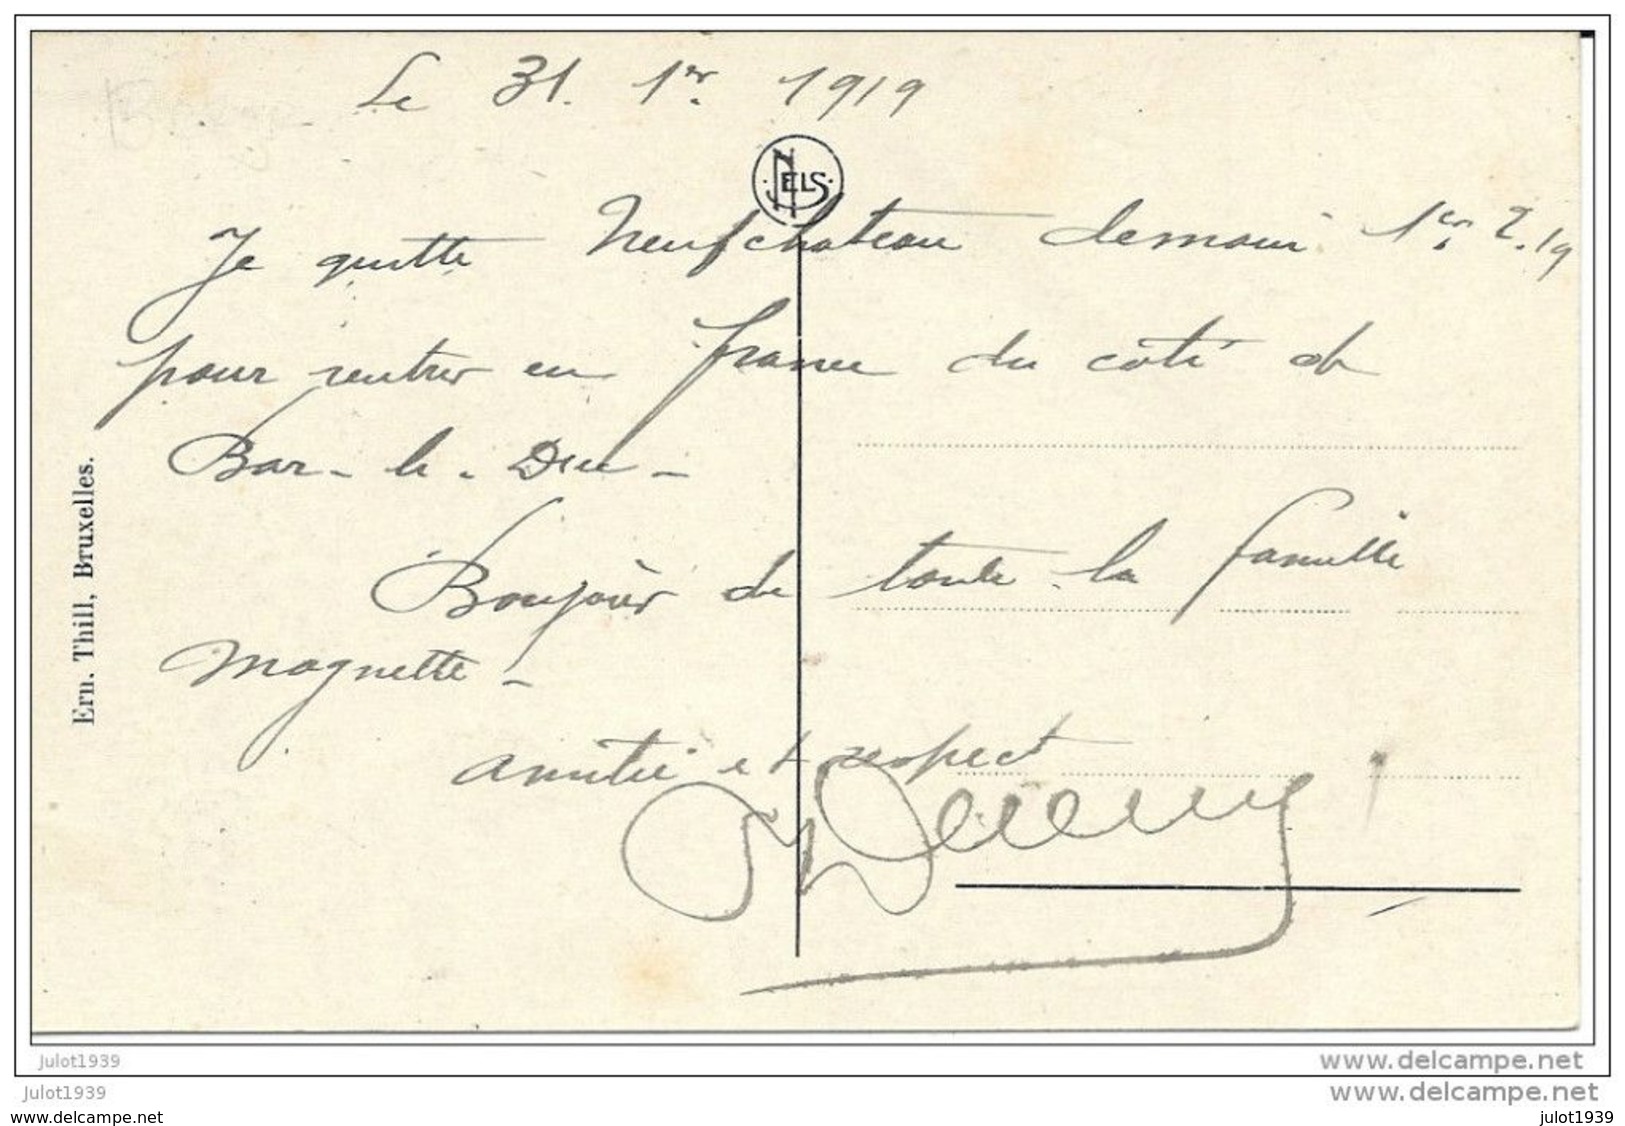 Le 31. 1er. 1919
NELS
Je quitte Neufchateau demain 1er. 2.19
pour rentrer en france du coté de
Bar-le-Duc-
Bonjour de toute la famille
Magnette-
amitié et respect
Ern. Thill, Bruxelles.
julot1939
www.delcampe.net
julot1939
www.delcampe.net
www.delcampe.net
julot1939